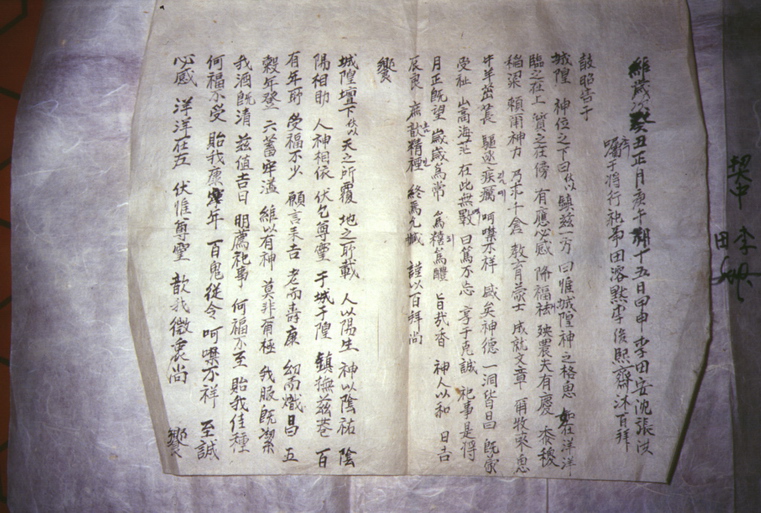 契中 李
田
維歲次癸丑正月庚午朔十五日甲申 李田安沈張洪
于將行祀弟田溶點李俊熙齋沐百拜
敢昭告于
城隍 神位之下曰伏以 鎮玆一方 曰惟城隍神之格思 如在洋洋
臨之在上 質之在傍 有應必感 降福袪殃農夫有慶 黍稷
稻梁 賴爾神力 乃求千倉 敎育蒙士 成就文章 爾牧來思
牛羊茁長 驅逐疾癘 呵噤不祥 咸英神德 一洞皆昌 旣蒙
受祉 山高海茫 在此無斁 曰篤不忘 享于克誠 祀事是得
月正旣望 歲歲爲常 爲糦爲醴 旨哉香 神人以和 日吉
辰良 庶歆精禋 終焉允臧 謹以百拜尙
饗
城隍壇下伏以 天之所覆 地之所載 人以陽生 神以陰祐 陰
陽相助 人神相依 伏乞尊靈 于城于隍 鎮撫玆巷 百
有年所 受福不少 顧言采吉 老而壽康 幼而熾昌 五
穀年登 六蓄牢溢 維以有神 莫非爾極 我服旣潔
我酒旣淸 玆値吉日 明薦祀事 何福不至 貽我佳種
何福不受 貽我康年 百鬼從令 呵噤不祥 至誠
必感 洋洋在玆 伏惟尊靈 歆我微衷尙 饗